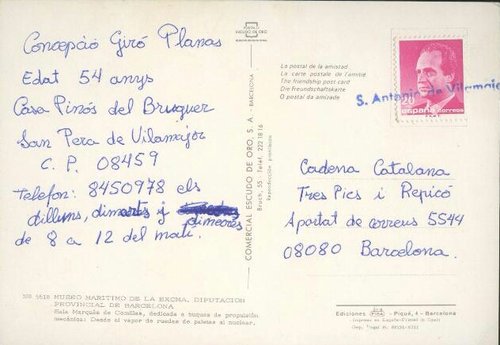 Concepció Giró Planas
Edat 54 anys
Casa Pinós del Bruguer
San Pera de Vilamajor
C. P. 08459
Telefon: 8450978 els
dilluns, dimarts y dimecres
de 8 a 12 del matí.
508 SERIE MUSEO MARITIMO DE LA EXCMA. DIPUTACION
PROVINCIAL DE BARCELONA
Sala Marqués de Comillas, dedicada a buques de propulsión
mecánica: Desde el vapor de ruedas de paletas al nuclear.
POSTALES
ESCUDO DE ORO
COMERCIAL ESCUDO DE ORO, S. A. - BARCELONA
Bruch, 55 - Telef. 2221816
Reproducción prohibida
La postal de la amistad
La carte postale de l'amitié
The friendship post card
Die Freundschaftskarte
O postal da amizade
ESPAÑA CORREOS
S. Antonio de Vilamajor
Cadena Catalana
Tres Pics i Repicó
Apartat de correus 5544
08080 Barcelona.
Ediciones - Piqué, 4 - Barcelona